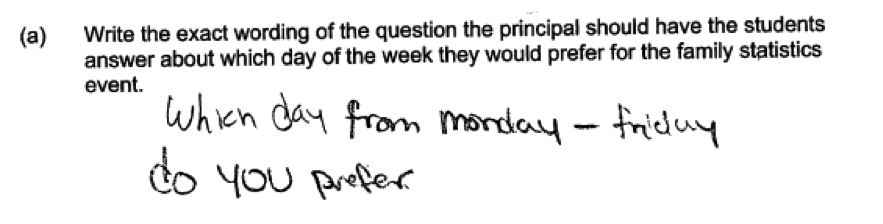 (a) Write the exact wording of the question the principal should have the students
answer about which day of the week they would prefer for the family statistics
event.
Which day from monday – friday
do you prefer